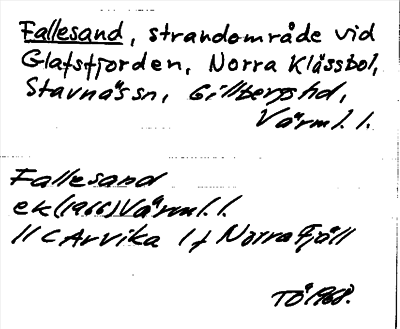 Fallesand, strandområde vid
Glafsfjorden, Norra Klässbol,
Stavnäs sn, Gillbergs hd,
Värml. l.
Fallesand
ek (1966) Värml. l.
11 C Arvika 1 f Norra Fjäll
TÖ 1968.